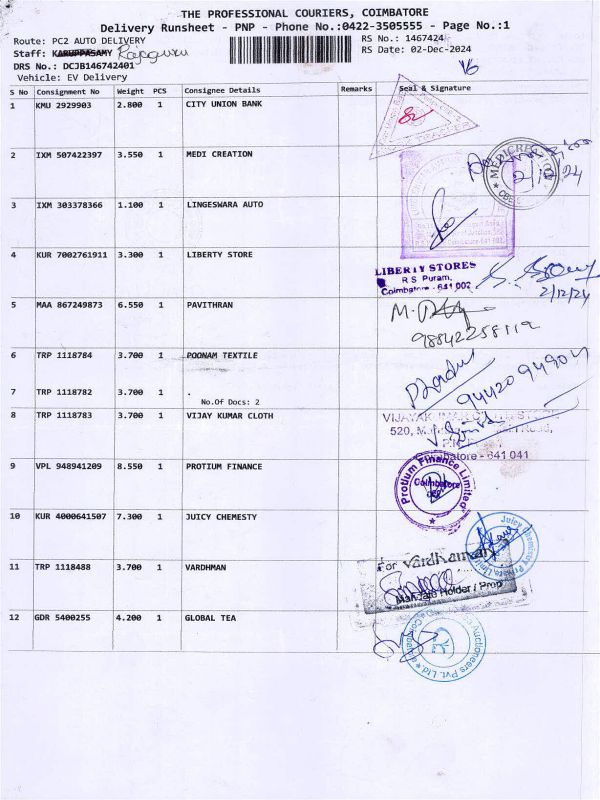 THE PROFESSIONAL COURIERS, COIMBATORE
Delivery Runsheet - PNP - Phone No.:0422-3505555 - Page No.:1
Route: PC2 AUTO DELIVERY
RS No.: 1467424
Staff: KARUPPASAMY Rajaguru
RS Date: 02-Dec-2024
DRS No.: DCJB146742401
Vehicle: EV Delivery
S No Consignment No Weight PCS Consignee Details Remarks Seal & Signature
1 KMU 2929903 2.800 1 CITY UNION BANK
2 IXM 507422397 3.550 1 MEDI CREATION
MEDICREATION
3 IXM 303378366 1.100 1 LINGESWARA AUTO
4 KUR 7002761911 3.300 1 LIBERTY STORE
LIBERTY STORES
R S Puram,
Coimbatore - 641 002
2/12/24
5 MAA 867249873 6.550 1 PAVITHRAN
M.
98842258119
6 TRP 1118784 3.700 1 POONAM TEXTILE
7 TRP 1118782 3.700 1 .
No.Of Docs: 2
94420 94904
8 TRP 1118783 3.700 1 VIJAY KUMAR CLOTH
520,
Coimbatore - 641 041
9 VPL 948941209 8.550 1 PROTIUM FINANCE
Protium Finance Limited
Coimbatore
10 KUR 4000641507 7.300 1 JUICY CHEMESTY
Juicy Chemistry Private Limited
11 TRP 1118488 3.700 1 VARDHMAN
For Vardhaman
Mandate Holder / Prop
12 GDR 5400255 4.200 1 GLOBAL TEA
Auctioneers Pvt. Ltd.